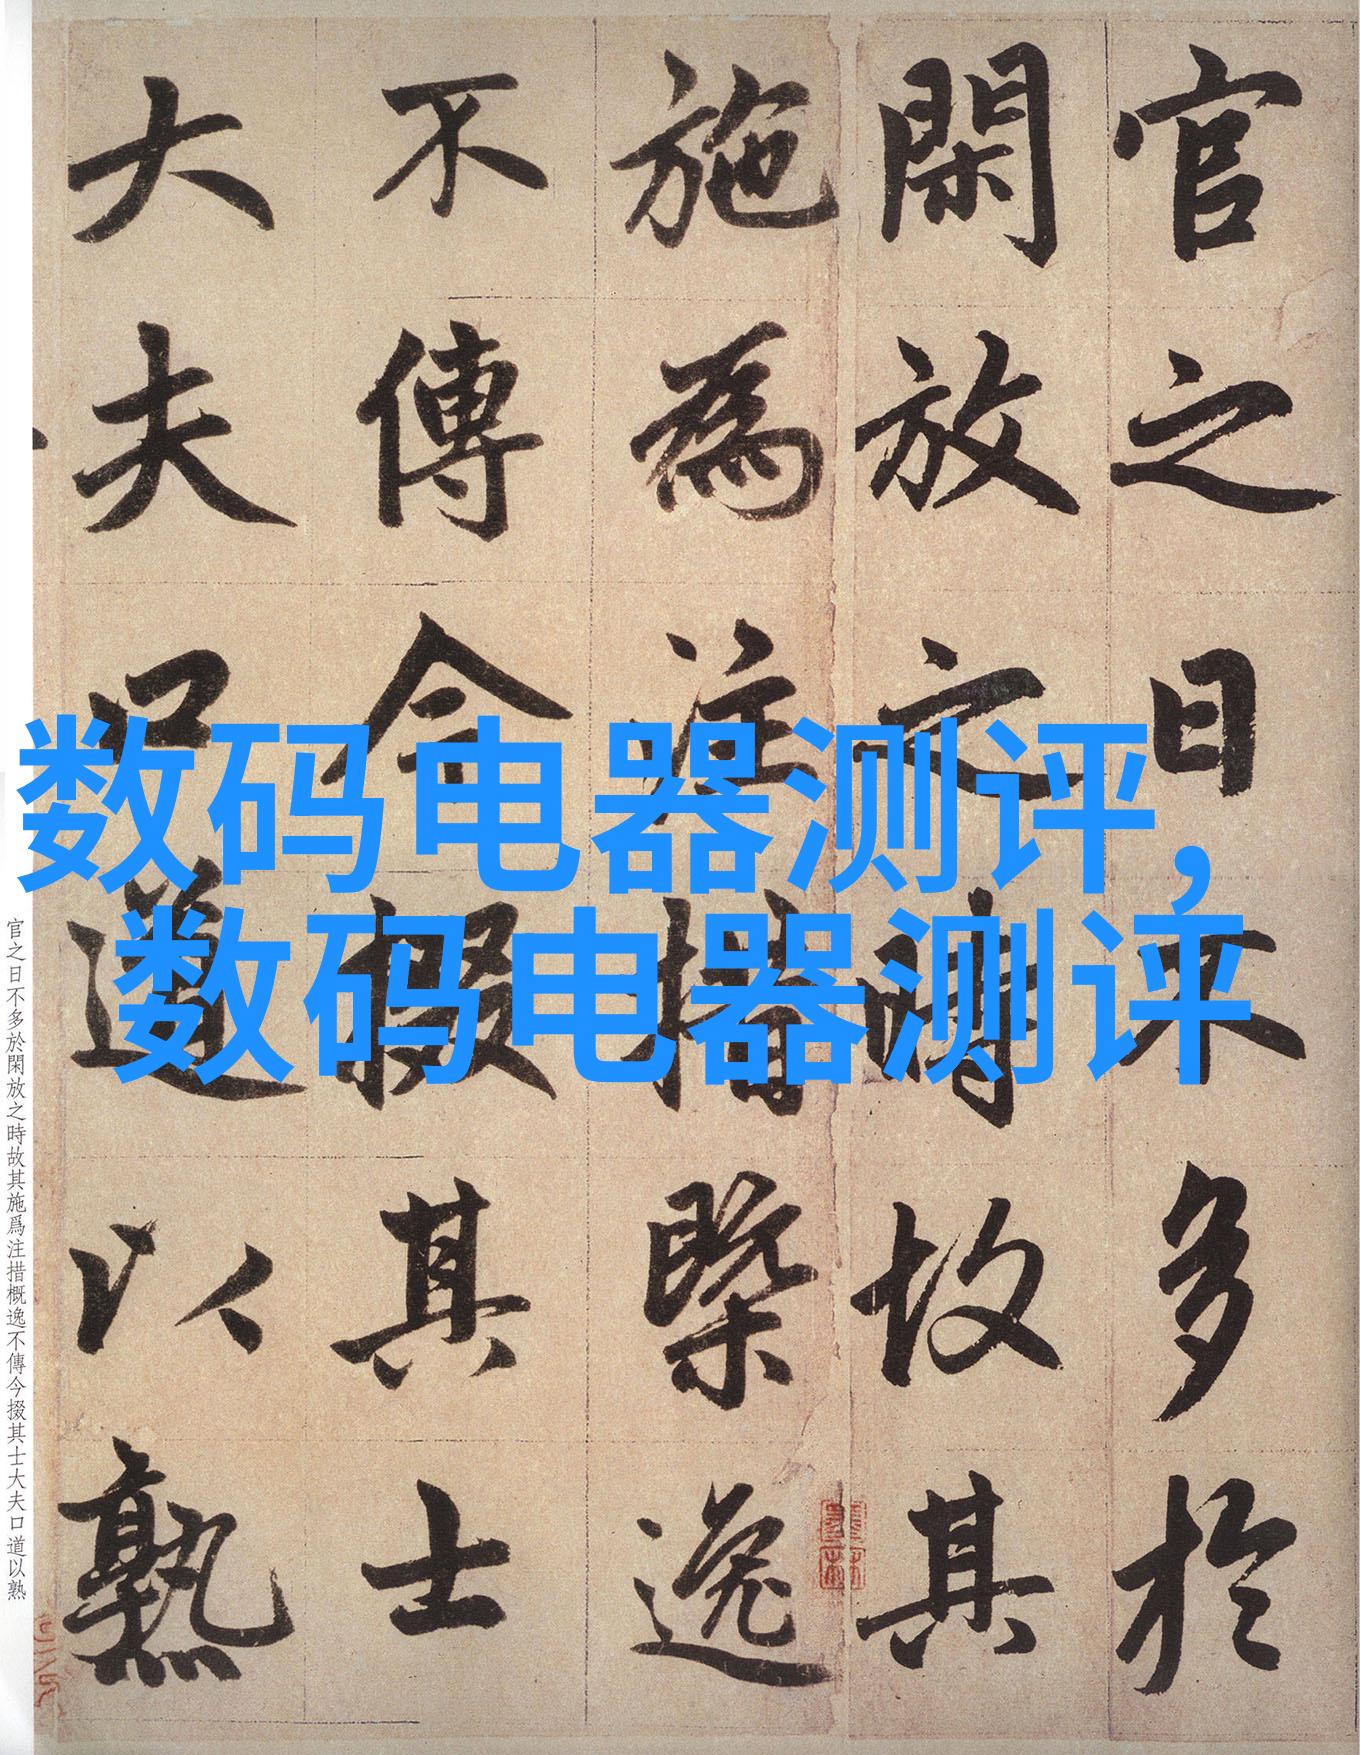 官之日不多於
閑放之時故其
施為注措槩逸
不傳今掇其士
大夫口道以熟
数码电器测评,
数码电器测评
官之日不多於閑放之時故其施爲注措概逸不傳今掇其士大夫口道以熟